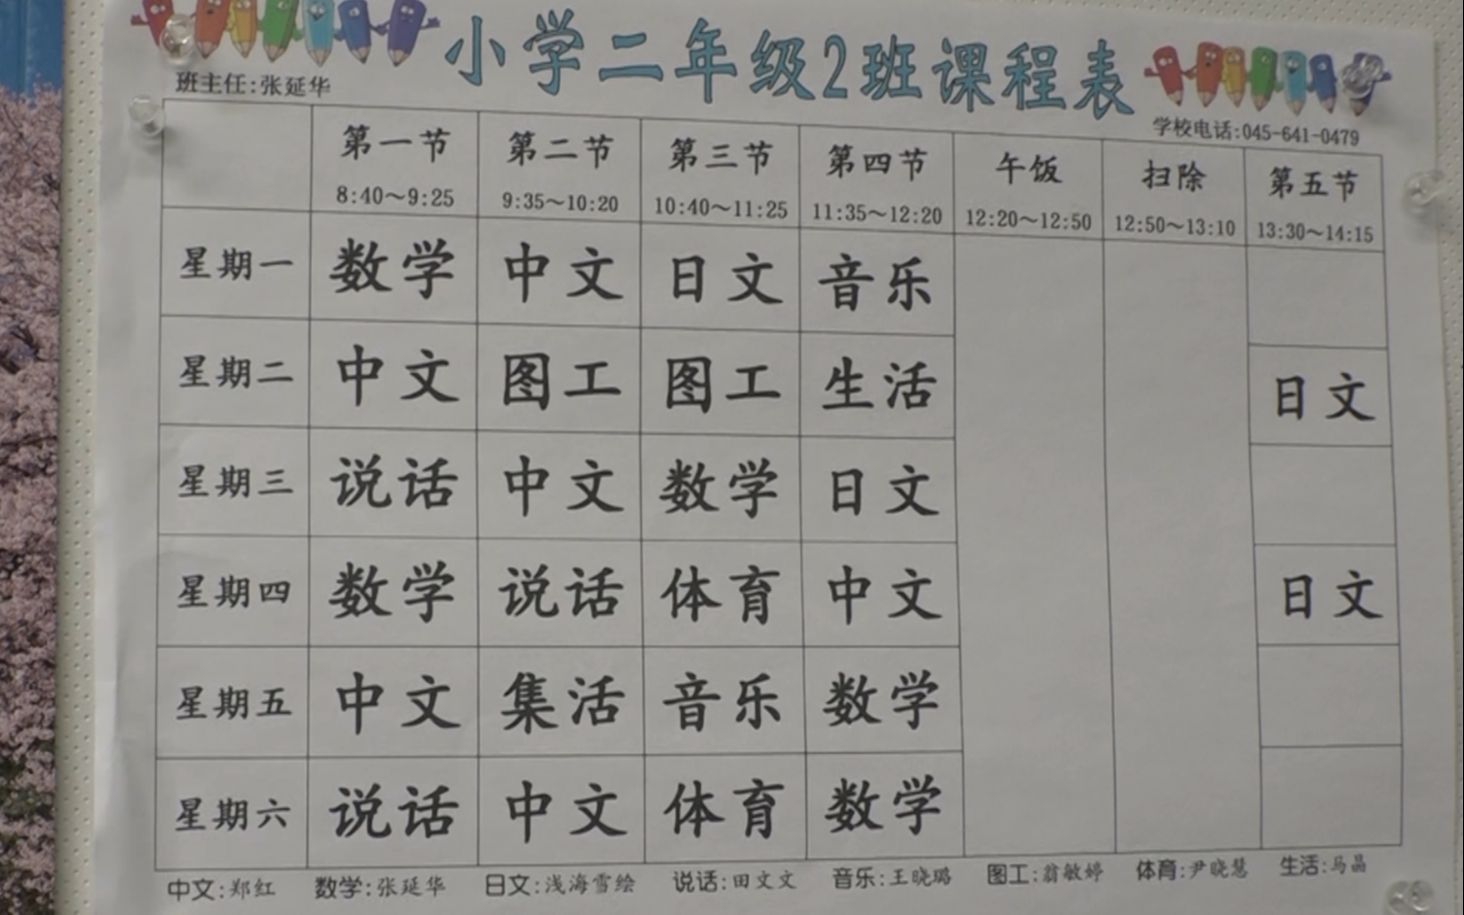 小学二年级2班课程表
班主任:张延华
学校电话:045-641-0479
第一节 第二节 第三节 第四节 午饭 扫除 第五节
8:40～9:25 9:35～10:20 10:40～11:25 11:35～12:20 12:20～12:50 12:50～13:10 13:30～14:15
星期一 数学 中文 日文 音乐
星期二 中文 图工 图工 生活 日文
星期三 说话 中文 数学 日文
星期四 数学 说话 体育 中文 日文
星期五 中文 集活 音乐 数学
星期六 说话 中文 体育 数学
中文:郑红 数学:张延华 日文:浅海雪绘 说话:田文文 音乐:王晓璐 图工:翁敏婷 体育:尹晓慧 生活:马晶